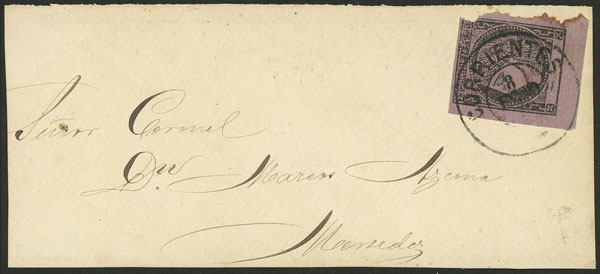 CORRIENTES
8
Señor Coronel
Dn Marcos Azcona
Mercedes